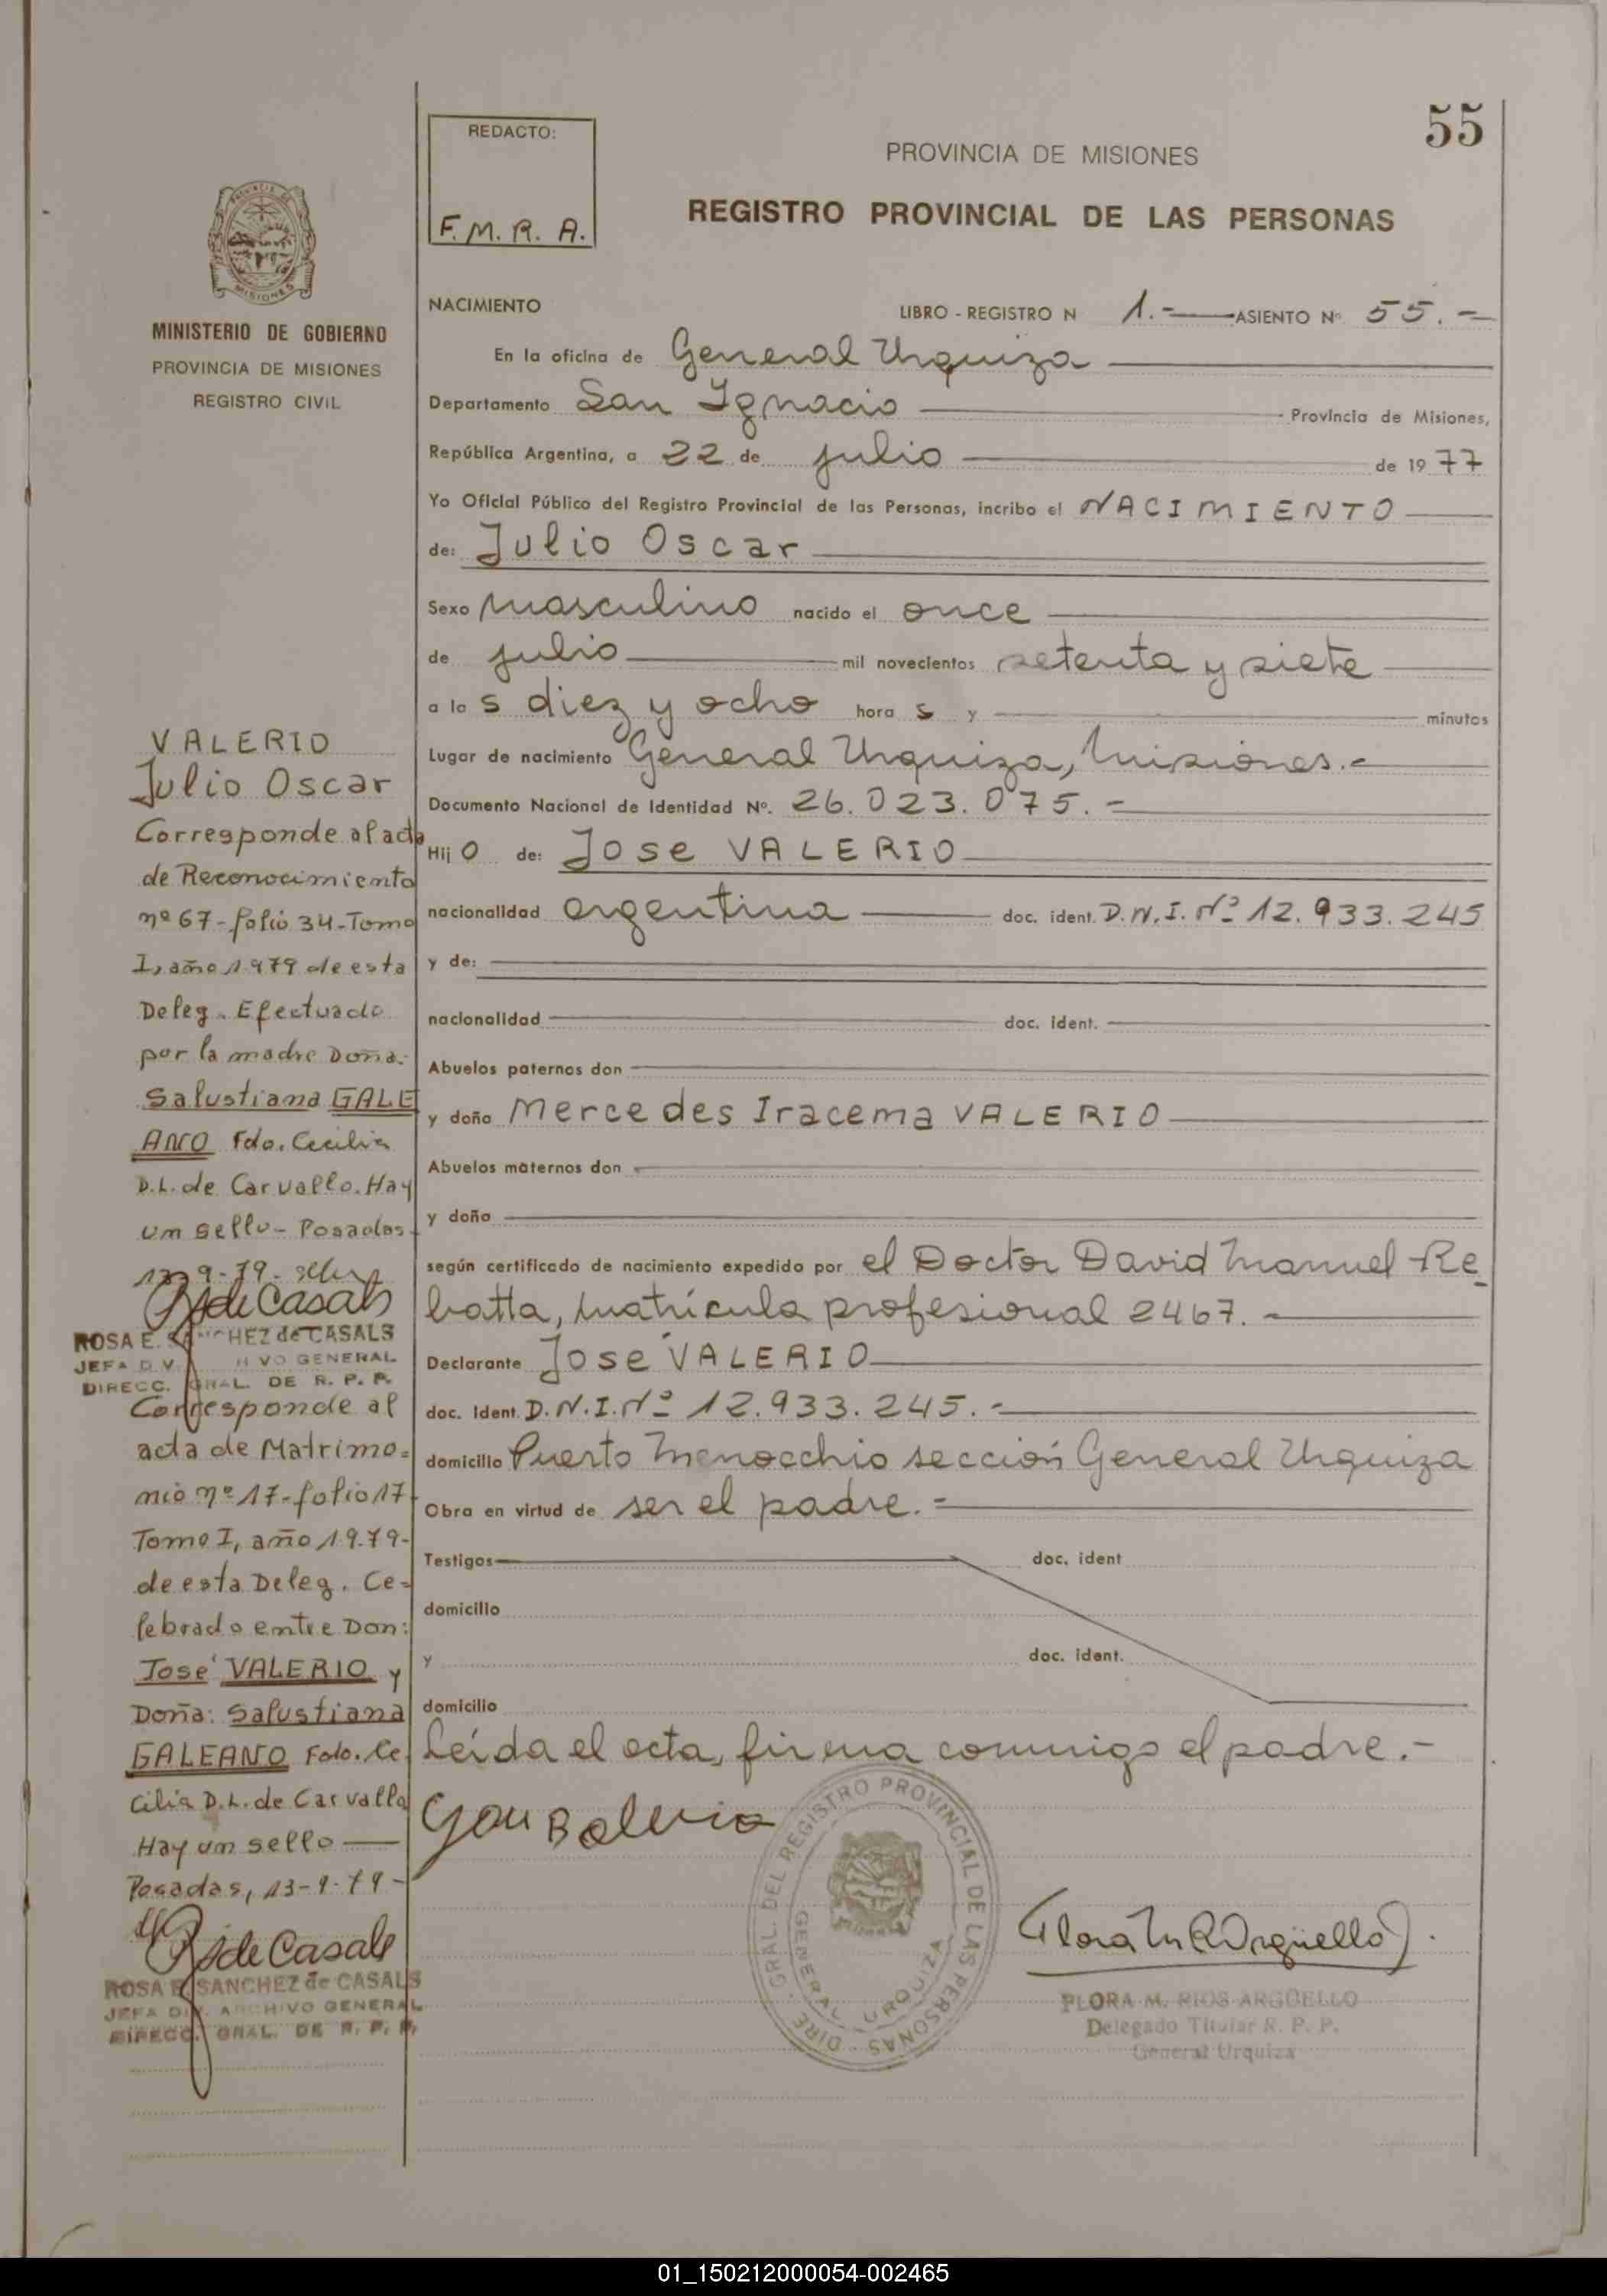 55
REDACTO:
F. M. R. A.
PROVINCIA DE MISIONES
REGISTRO PROVINCIAL DE LAS PERSONAS
MISIONES
MINISTERIO DE GOBIERNO
PROVINCIA DE MISIONES
REGISTRO CIVIL
NACIMIENTO LIBRO - REGISTRO N 1.- ASIENTO Nº 55.-
En la oficina de General Urquiza
Departamento San Ignacio Provincia de Misiones,
República Argentina, a 22 de julio de 1977
Yo Oficial Público del Registro Provincial de las Personas, incribo el NACIMIENTO
de: Julio Oscar
Sexo masculino nacido el once
de julio mil novecientos setenta y siete
a las diez y ocho horas y minutos
Lugar de nacimiento General Urquiza, Misiones.-
Documento Nacional de Identidad Nº. 26.023.075.-
Hijo de: Jose VALERIO
nacionalidad argentina doc. ident. D.N.I. Nº 12.933.245
y de:
nacionalidad doc. ident.
Abuelos paternos don
y doña Mercedes Iracema VALERIO
Abuelos maternos don
y doña
según certificado de nacimiento expedido por el Doctor David Manuel Re-
batta, matrícula profesional 2467.-
Declarante José VALERIO
doc. Ident. D.N.I. Nº 12.933.245.-
domicilio Puerto Menocchio sección General Urquiza
Obra en virtud de ser el padre.-
Testigos doc. ident
domicilio
y doc. ident.
domicilio
Leída el acta, firma conmigo el padre.-
DIRE. GRAL. DEL REGISTRO PROVINCIAL DE LAS PERSONAS
GENERAL URQUIZA
Flora M R Argüello
FLORA M. RIOS ARGÜELLO
Delegado Titular R. P. P.
General Urquiza
VALERIO
Julio Oscar
Corresponde al acta
de Reconocimiento
nº 67-folio 34-Tomo
I, año 1979 de esta
Deleg. Efectuado
por la madre Doña:
Salustiana GALE
ANO Fdo. Cecilia
D.L. de Carvallo. Hay
um sello- Posadas
9-79-
RSdeCasals
ROSA E. SANCHEZ de CASALS
JEFA DIV. ARCHIVO GENERAL
DIRECC. GRAL. DE R. P. P.
Corresponde al
acta de Matrimo=
nio nº 17-folio 17
Tomo I, año 1979-
de esta Deleg. Ce-
lebrado entre Don:
José VALERIO y
Doña: Salustiana
GALEANO Fdo. Ce
cilia D.L. de Carvallo
Hay um sello
Posadas, 13-9-79-
RSdeCasals
ROSA E. SANCHEZ de CASALS
JEFA DIV. ARCHIVO GENERAL
DIRECC. GRAL. DE R. P. P.
01_150212000054-002465